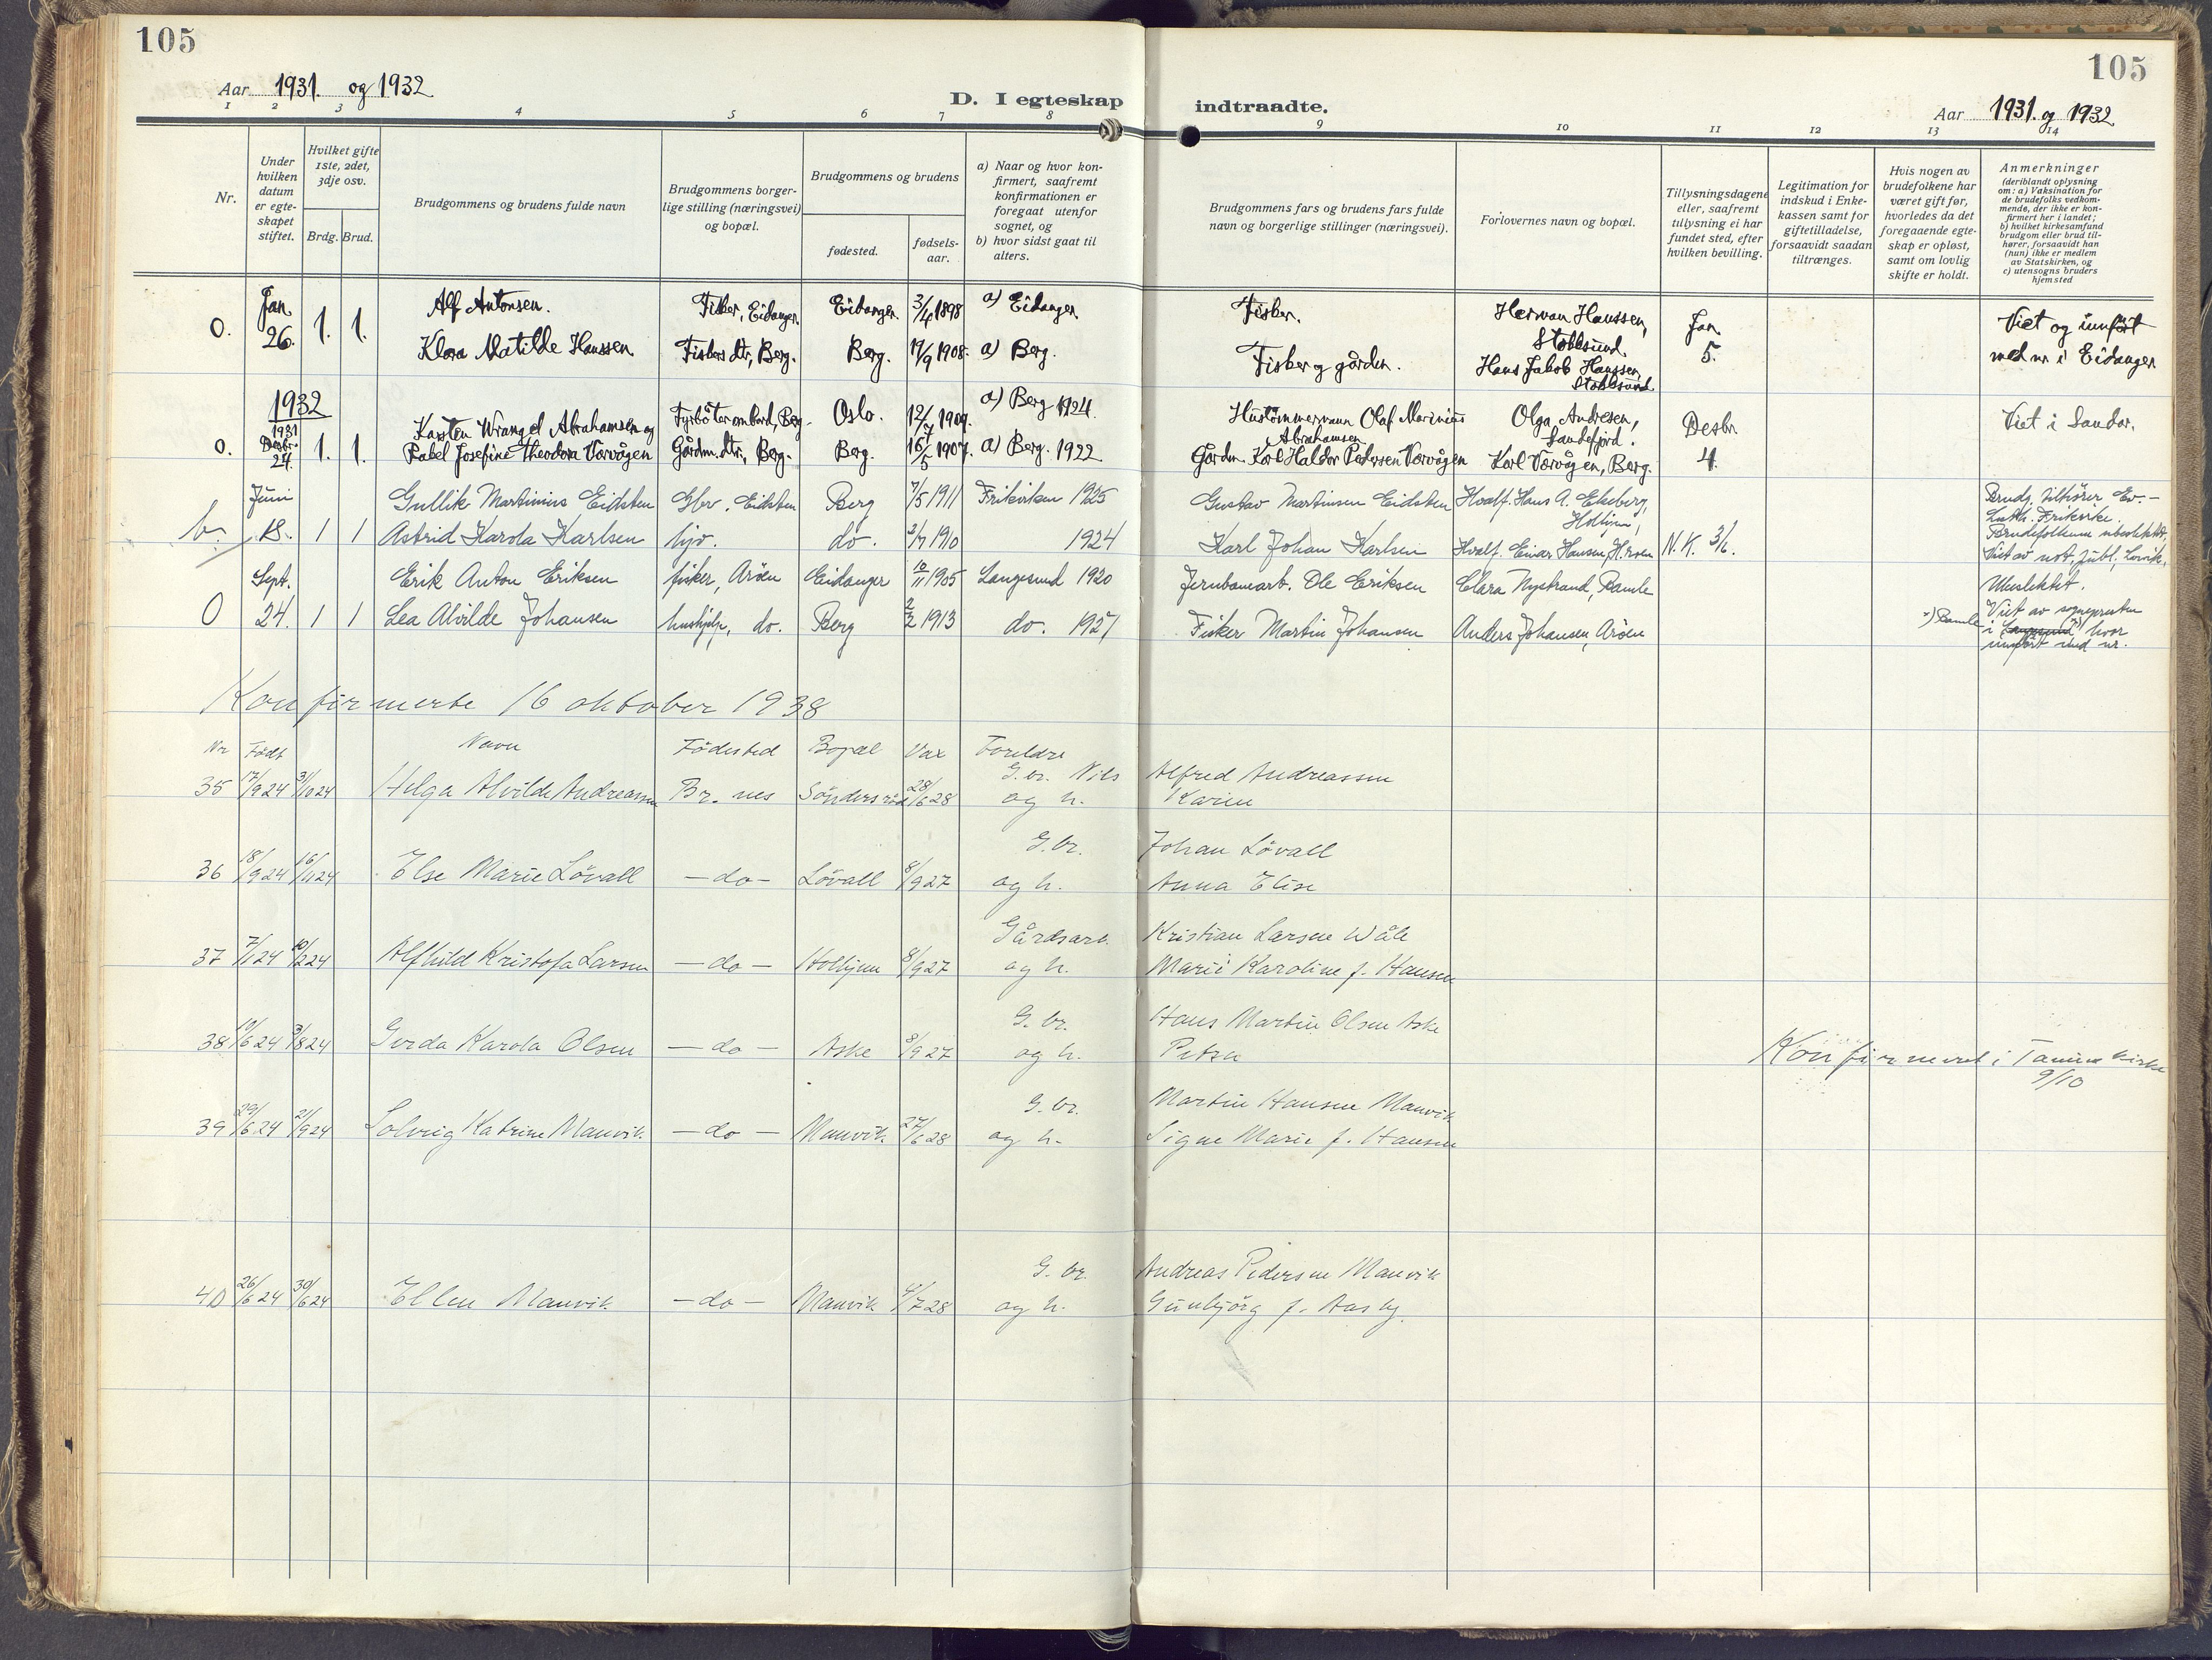 105
105
Aar 1931. og 1932
D. I egteskap indtraadte.
Aar 1931. og 1932
1 2 3 4 5 6 7 8 9 10 11 12 13 14
Nr.
Under hvilken datum er egteskapet stiftet.
Hvilket gifte 1ste, 2det, 3dje osv.
Brdg. Brud.
Brudgommens og brudens fulde navn
Brudgommens borgerlige stilling (næringsvei) og bopæl.
Brudgommens og brudens
fødested.
fødselsaar.
a) Naar og hvor konfirmert, saafremt konfirmationen er foregaat utenfor sognet, og
b) hvor sidst gaat til alters.
Brudgommens fars og brudens fars fulde navn og borgerlige stillinger (næringsvei).
Forlovernes navn og bopæl.
Tillysningsdagene eller, saafremt tillysning ei har fundet sted, efter hvilken bevilling.
Legitimation for indskud i Enkekassen samt for giftetilladelse, forsaavidt saadan tiltrænges.
Hvis nogen av brudefolkene har været gift før, hvorledes da det foregaaende egteskap er opløst, samt om lovlig skifte er holdt.
Anmerkninger
(deriblandt oplysning om: a) Vaksination for de brudefolks vedkommende, der ikke er konfirmert her i landet;
b) hvilket kirkesamfund brudgom eller brud tilhører, forsaavidt han (hun) ikke er medlem av Statskirken, og
c) utensogns bruders hjemsted
Jan. Alf Antonsen. Fisker, Eidanger. Eidanger. 3/4 1898 a) Eidanger. Fisker. Herman Hanssen, Stokksund. Jan. Viet og innført
0. 26. 1. 1. Klara Matilde Hanssen. Fiskers dtr., Berg. Berg. 19/9 1908. a) Berg. Fisker og gårdm. Hans Jakob Hanssen, Stokksund 5. med nr i Eidanger
1932
1931 Karsten Wrangel Abrahamsen og Fyrböter ombord, Berg. Oslo. 12/7 1909. a) Berg 1924. Hustömmermann Olaf Marinius Abrahamsen Olga Andresen, Sandefjord. Desbr. Viet i Sandar.
0. Desbr. 24. 1. 1. Rakel Josefine Theodora Vårvågen Gårdm. dtr., Berg. Berg. 16/5 1907. a) Berg. 1922 Gårdm. Karl Haldor Pedersen Vårvågen Karl Vårvågen, Berg. 4.
Juni Gullik Martinius Eidsten Gbr. Eidsten Berg 7/5 1911 Frikirken 1925 Gustav Martinsen Eidsten Hvalf. Hans A. Ekeberg, Holtjenn, Brudg. tilhører Ev.-Luth. Frikirke.
b. 18. 1 1 Astrid Karola Karlsen hjv. do. 2/7 1910 1924 Karl Johan Karlsen Hvalf. Einar Hansen, N. K. 3/6. Brudefolkene ubeslektet, Viet av
Sept. Erik Anton Eriksen fisker, Aröen Eidanger 10/11 1905 Langesund 1920 Jernbanearb. Ole Eriksen Clara Nystrand, Bamle Ubeslektet.
0 24. 1 1 Lea Alvilde Johansen hushjelp, do. Berg 2/2 1913 do. 1927 Fisker Martin Johansen Anders Johansen, Aröen Viet av sognepresten
x) Bamle i Langesund x) hvor innført med nr.
Konfirmerte 16 oktober 1938
Nr Född Navn Födested Bopæl Vax Foreldre
G.br. Nils Alfred Andreassen
35 17/9 24 31/10 24 Helga Alvilde Andreassen Br.nes Söndersröd 28/6 28 og h. Karin
G.br. Johan Lövall
36 18/9 24 16/11 24 Else Marie Lövall —do— Lövall 8/9 27 og h. Anna Elise
Gårdsarb. Kristian Larsen Wåle
37 7/1 24 10/2 24 Alfhild Kristofa Larsen —do— Holtjenn 8/9 27 og h. Marie Karoline f. Hansen
G.br. Hans Martin Olsen Aske
38 19/6 24 3/8 24 Gerda Karola Olsen —do— Aske 8/9 27 og h. Petra Konfirmert i Tanum kirke
9/10
G.br. Martin Hansen Manvik
39 29/6 24 21/9 24 Solveig Katrine Manvik —do— Manvik 27/6 28 og h. Signe Marie f. Hansen
G.br. Andreas Pedersen Manvik
40 26/6 24 30/6 24 Ellen Manvik —do— Manvik 4/7 28 og h. Gunbjörg f. Aasby.